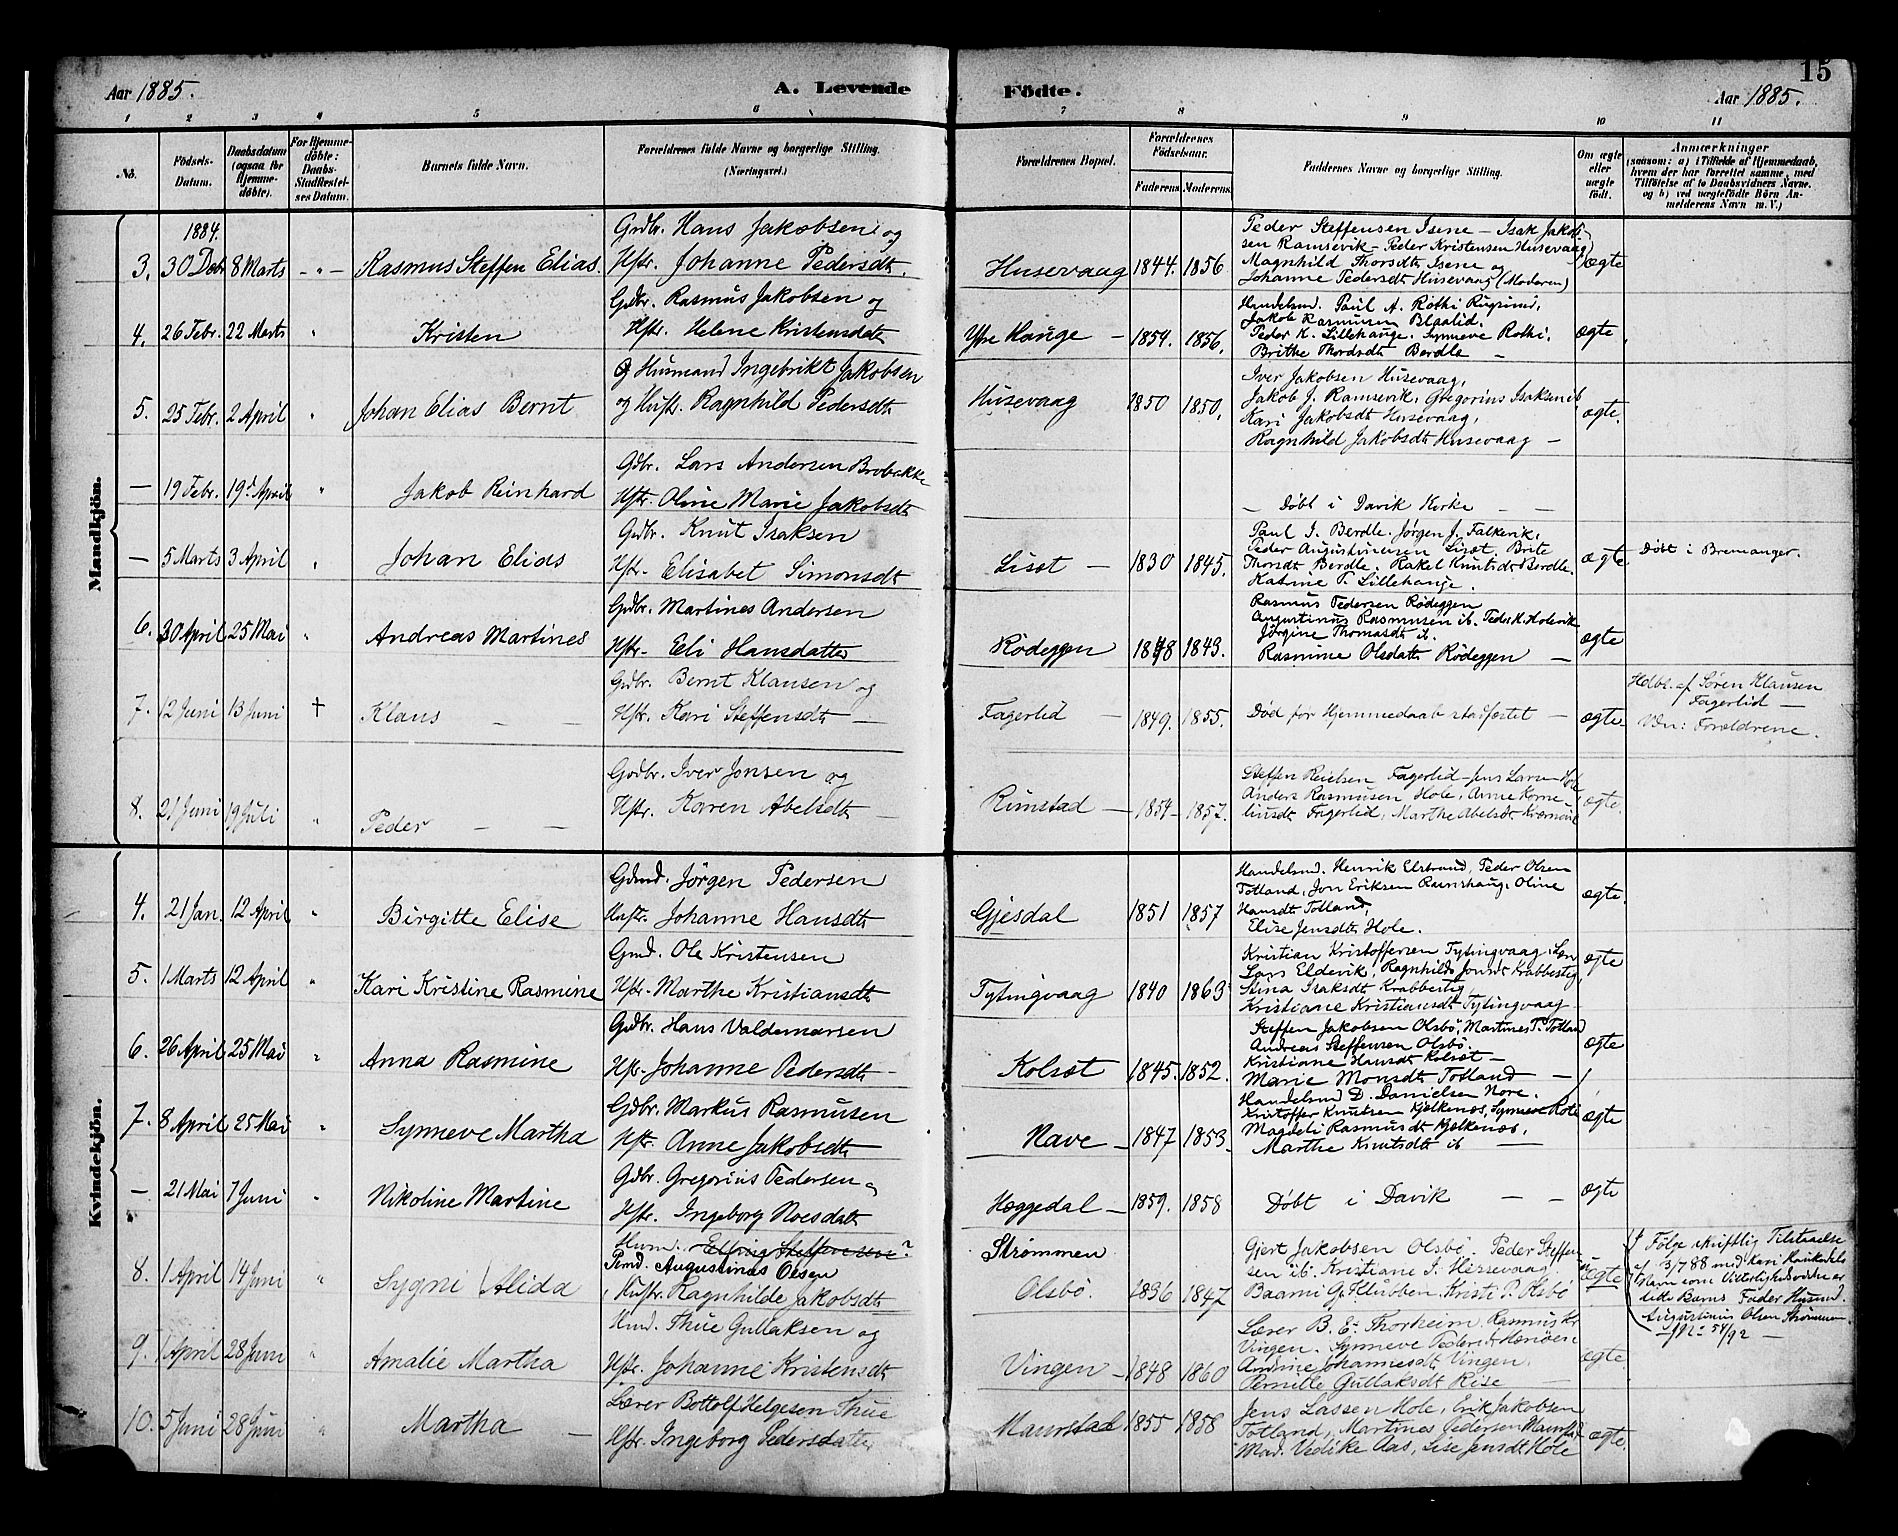 15
Aar 1885.
A. Levende
Födte.
Aar 1885.
1 2 3 4 5 6 7 8 9 10 11
No.
Födsels-
Datum.
Daabsdatum
(ogsaa for
Hjemme-
döbte).
For Hjemme-
döbte:
Daabs-
Stadfæstel-
ses Datum.
Barnets fulde Navn.
Forældrenes fulde Navne og borgerlige Stilling.
(Næringsvei.)
Forældrenes Bopæl.
Forældrenes
Födselsaar.
Faderens.
Moderens.
Faddernes Navne og borgerlige Stilling.
Om ægte
eller
uægte
födt.
Anmærkninger
(saasom: a) i Tilfælde af Hjemmedaab,
hvem der har forrettet samme, med
Tilföielse af to Daabsvidners Navne.
og b) ved uægtefödte Börn An-
melderens Navn m. V.)
Mandkjön.
1884.
3. 30 Decbr 8 Marts - " - Rasmus Steffen Elias.
Grdbr. Hans Jakobsen og
Hstr. Johanne Pedersdtr.
Husevaag 1844. 1856
Peder Steffensen Isene - Isak Jakob-
sen Ramsevik - Peder Kristensen Husevaag
Magnhild Thorsdtr Isene og
Johanne Pedersdtr Husevaag (Moderen)
ægte
4. 26 Febr. 22 Marts " Kristen
Grdbr. Rasmus Jakobsen og
Hstr. Helene Kristensdtr
Ytre Hauge - 1854. 1856.
Handelsmd. Paul A. Rothi Rugsund,
Jakob Rasmusen Blaalid.
Peder K. Lillehauge. Synneve Rothi.
Brithe Thordsdtr Berdle -
ægte
5. 25 Febr. 2 April " Johan Elias Bernt
Husmand Ingebrikt Jakobsen
og Hustr. Ragnhild Pedersdtr
Husevaag 1850 1850.
Iver Jakobsen Husevaag,
Jakob J. Ramsevik, Gregorius Isaksen ib.
Kari Jakobsdtr Husevaag,
Ragnhild Jakobsdtr Husevaag -
ægte.
- 19 Febr. 19d April " Jakob Reinhard
Gdbr. Lars Andersen Brobakke
Hstr. Oline Marie Jakobsdtr
- Døbt i Davik Kirke - -
- 5 Marts 3 April " Johan Elias
Grdbr. Knut Isaksen
Hstr. Elisabet Simonsdtr
Liset - 1830 1845.
Paul I. Berdle. Jørgen J. Falkevik,
Peder Augustinusen Liset, Brite
Thorsdtr Berdle. Rakel Knutsdtr Berdle.
Katrine P. Lillehauge.
ægte
Døbt i Bremanger.
6. 30 April 25 Mai " Andreas Martines
Grdbr. Martines Andersen
Hstr. Eli Hansdatter
Rödeggen 1848 1843.
Rasmus Pedersen Rödeggen
Augustinus Rasmusen ib. Peder K. Holevik
Jörgine Thomasdtr ib.
Rasmine Olsdatr Rödeggen -
ægte
7. 12 Juni 13 Juni † Klaus - -
Grdbr. Bernt Klausen og
Hstr. Kari Steffensdtr -
Fagerlid - 1849. 1855.
Död før Hjemmedaab stadfæstet -
ægte
Hdbt. af Sören Klausen
Fagerlid -
Vdn: Forældrene.
8. 21 Juni 19 Juli " Peder - -
Grdbr. Iver Jonsen og
Hstr. Karen Abelsdtr -
Rimstad - 1854 - 1857.
Steffen Reielsen Fagerlid - Jens Larsen Hole
Anders Rasmusen Hole, Anne Korne-
liusdtr Fagerlid, Marthe Abelsdtr
ægte.
Kvindekjön.
4. 21 Jan. 12 April " Birgitte Elise
Gdmd. Jörgen Pedersen
Hustr. Johanne Hansdtr
Gjesdal 1851 1857
Handelsmd. Henrik Elstrand, Peder Olsen
Totland, Jon Eriksen Ramshaug, Oline
Hansdtr Totland,
Elise Jensdtr Hole.
ægte.
5. 1 Marts 12 April " Kari Kristine Rasmine
Gmd. Ole Kristensen
Hstr. Marthe Kristiansdtr
Tytingvaag 1840 1863
Kristian Kristoffersen Tytingvaag,
Lars Eldevik, Ragnhilds Jonsdtr Krabbestig,
Stina Isaksdtr Krabbestig,
Kristiane Kristiansdtr Tytingvaag
ægte
6. 26 April 25 Mai " Anna Rasmine
Grdbr. Hans Valdemarsen
Hstr. Johanne Pedersdtr
Kolset - 1845. 1852.
Steffen Jakobsen Olsbö, Martines P. Totland
Andreas Steffensen Olsbö.
Kristiane Hansdtr Kolset -
Marie Monsdtr Totland -
ægte
7. 8 April 25 Mai " Synneve Martha
Gdbr. Markus Rasmusen
Hstr. Anne Jakobsdtr
Nave - 1847 1853.
Handelsmd D. Danielsen Nore.
Kristoffer Knutsen Kjelkenæs, Synneve Roti
Magdeli Rasmusdt Kjelkenæs,
Marthe Knutsdtr ib -
ægte
- 21 Mai 7 Juni " Nikoline Martine
Gdbr. Gregorius Pedersen
Hstr. Ingeborg Roesdatr
Heggedal - 1859. 1858
Döbt i Davik - -
ægte
8. 1 April 14 Juni " Sygni Alida
Husm.
Augustinus Olsen
Hustr. Ragnhilde Jakobsdtr
Strømmen
Olsbö. 1836 1847
Gjert Jakobsen Olsbö. Peder Steffen-
sen ib. Kristiane I. Husevaag
Kristi P. Olsbö
ægte
Følge skriftlig Tilstaaelse
af 3/7 88
Navn som Vitterlighedsvidne er
dette Barns Fader Husmd.
Augustinus Olsen Strömmen
54/92 -
9. 1 April 28 Juni " Amalie Martha
Hmd. Thue Gullaksen og
Hstr. Johanne Kristensdtr
Vingen - 1848 1860
Lærer B. E. Thorheim. Rasmus Kr
Vingen. Synneve Pedersdtr
Andrine Johannesdtr Vingen,
Pernille Gullaksdt Rise -
ægte.
10. 5 Juni 28 Juni " Martha -
Lærer Bottolf Helgesen Thue
Hstr. Ingeborg Pedersdatter
Maurstad 1855 1858
Jens Lassen Hole, Erik Jakobsen
Totland, Martines Pedersen Maurstad
Mad. Vedike Aas, Lise Jensdt Hole
ægte.